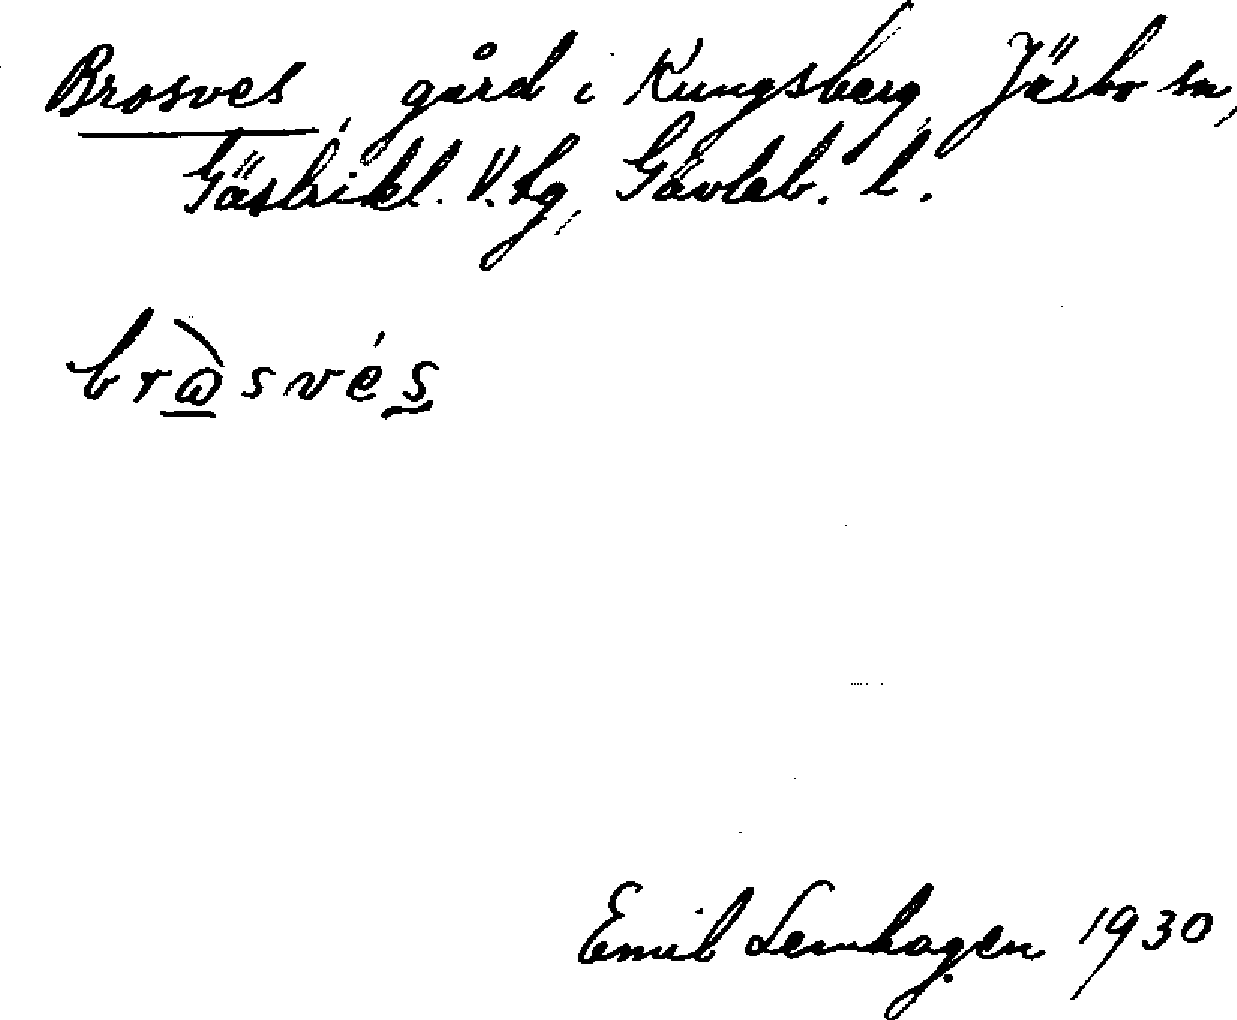 Brosves, gård i Kungsberg, Järbo sn,
Gästrikl. V. tg, Gävleb. l.
brωsvés
Emil Lenhagen 1930